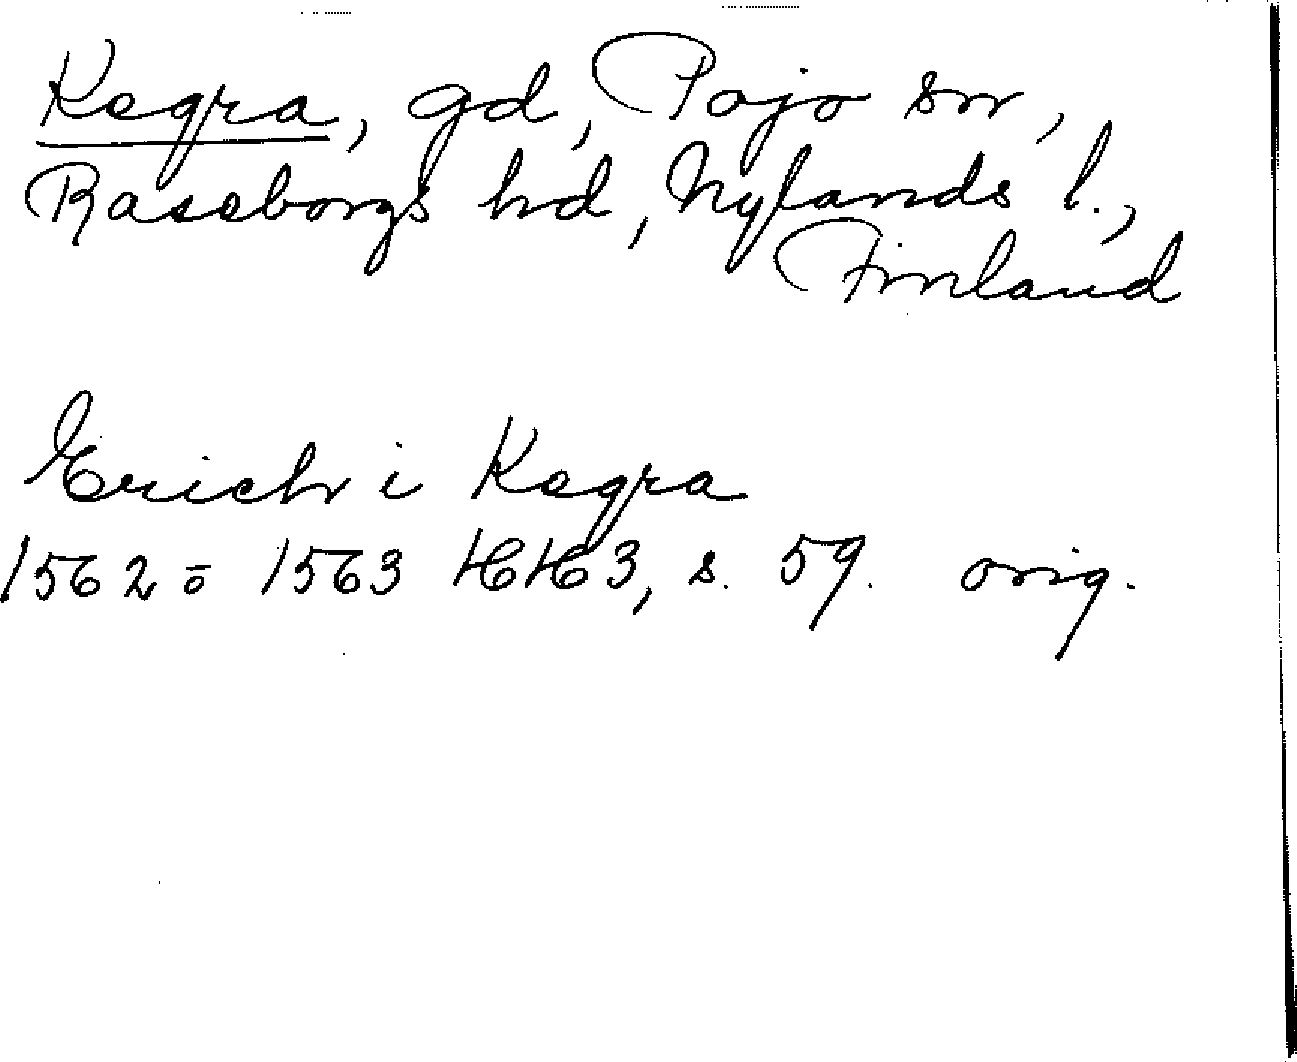 Kegra, gd, Pojo sn,
Raseborgs hd, Nylands l.,
Finland
Erich i Kegra
1562 ō 1563 HH3, s. 59. orig.